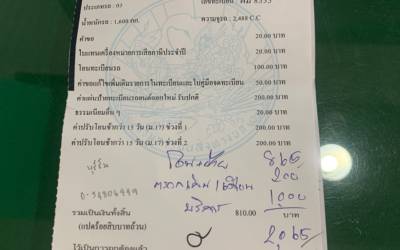 ประเภทรถ : 03 เลขทะเบียน : 8333
น้ำหนักรถ : 1,600 กก. ความจุรถ : 2,488 C.C
ค่าขอ 20.00 บาท
ใบแทนเครื่องหมายการเสียภาษีประจำปี 20.00 บาท
โอนทะเบียนรถ 100.00 บาท
ค่าขอแก้ไขเพิ่มเติมรายการในทะเบียนและใบคู่มือจดทะเบียน 50.00 บาท
ค่าแผ่นป้ายทะเบียนรถยนต์ออกใหม่ รับปกติ 200.00 บาท
ธรรมเนียมอื่น ๆ 20.00 บาท
ค่าปรับโอนช้ากว่า 15 วัน (ม.17) ช่วงที่ 1 200.00 บาท
ค่าปรับโอนช้ากว่า 15 วัน (ม.17) ช่วงที่ 2 200.00 บาท
865
200
1000
บริการ
รวมเป็นเงินทั้งสิ้น 810.00 บาท
(แปดร้อยสิบบาทถ้วน)
2,065